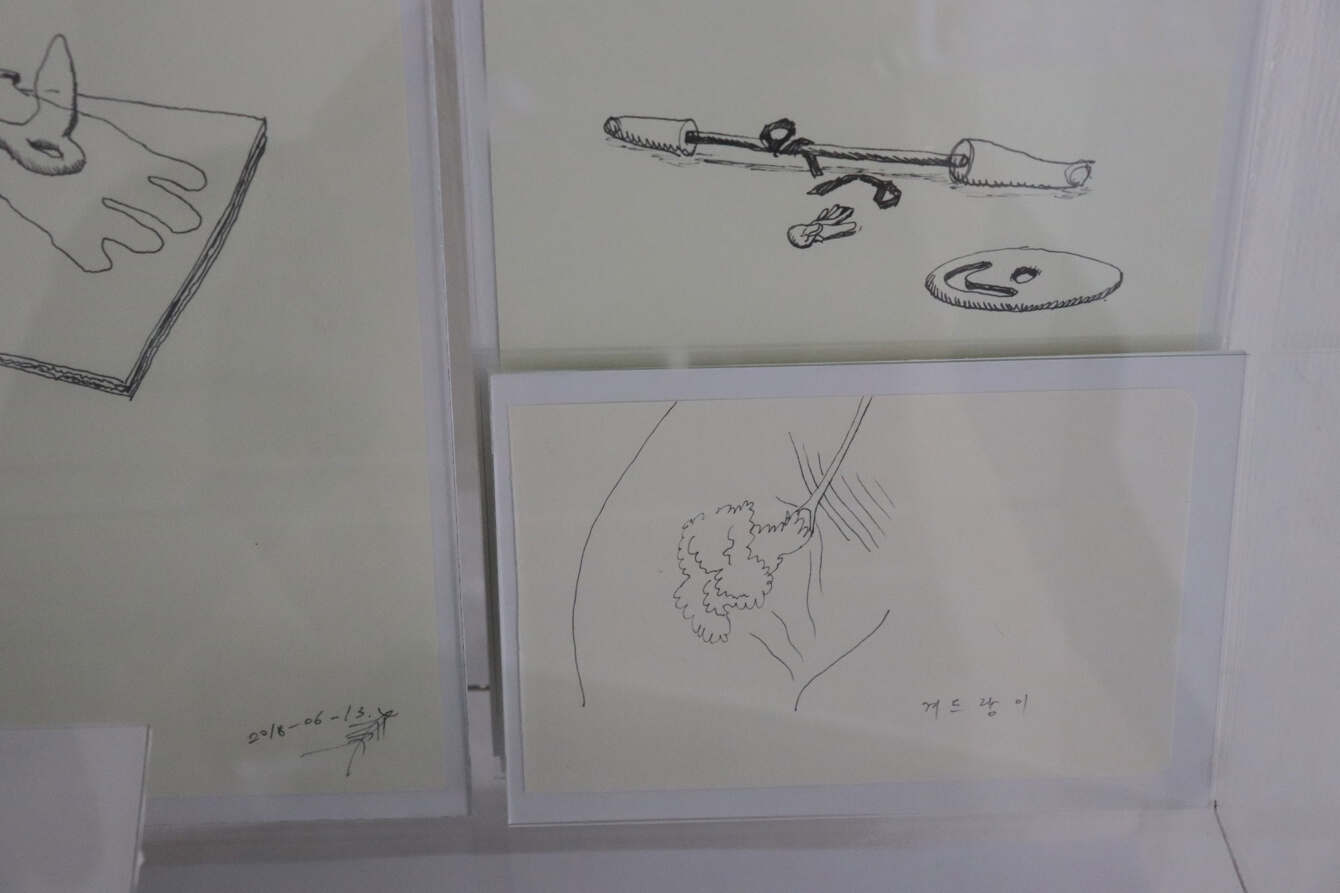 2018-06-13.
겨드랑이